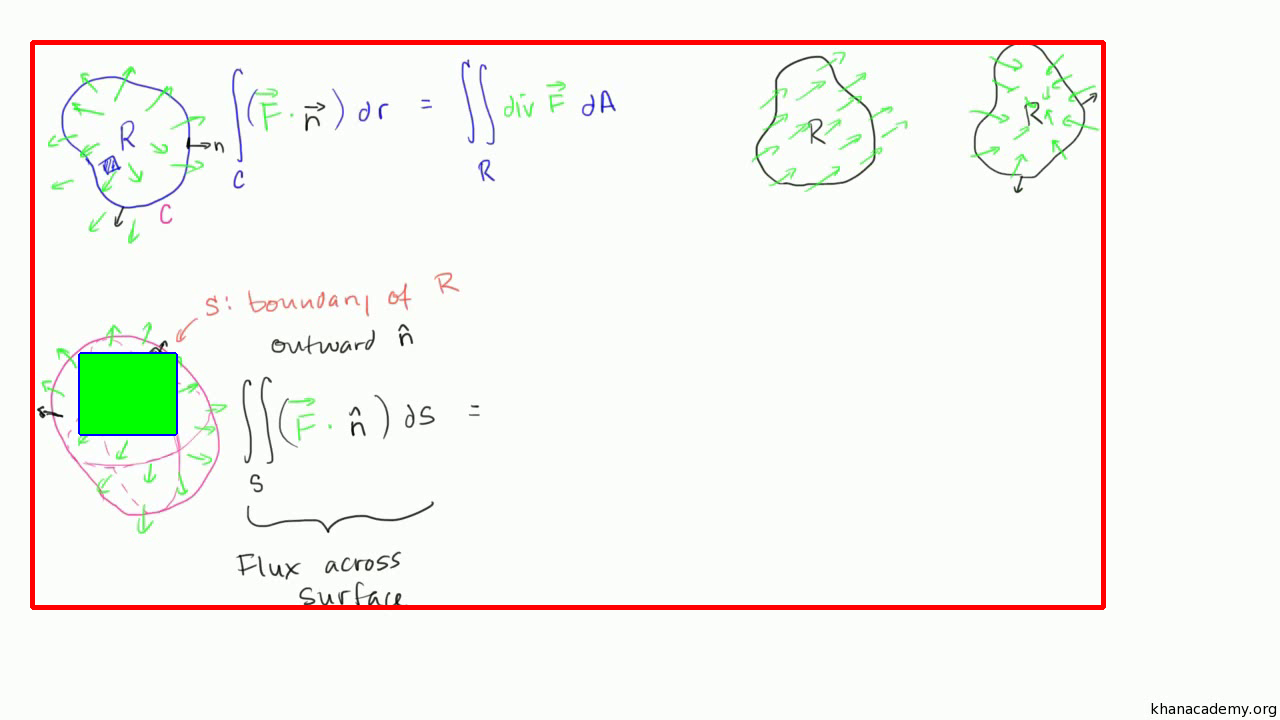 R n C
∫_C (F⃗ · n⃗) dr = ∬_R div F⃗ dA
R
R
S: boundary of R
outward n̂
∬_S (F⃗ · n̂) dS =
Flux across
surface
khanacademy.org